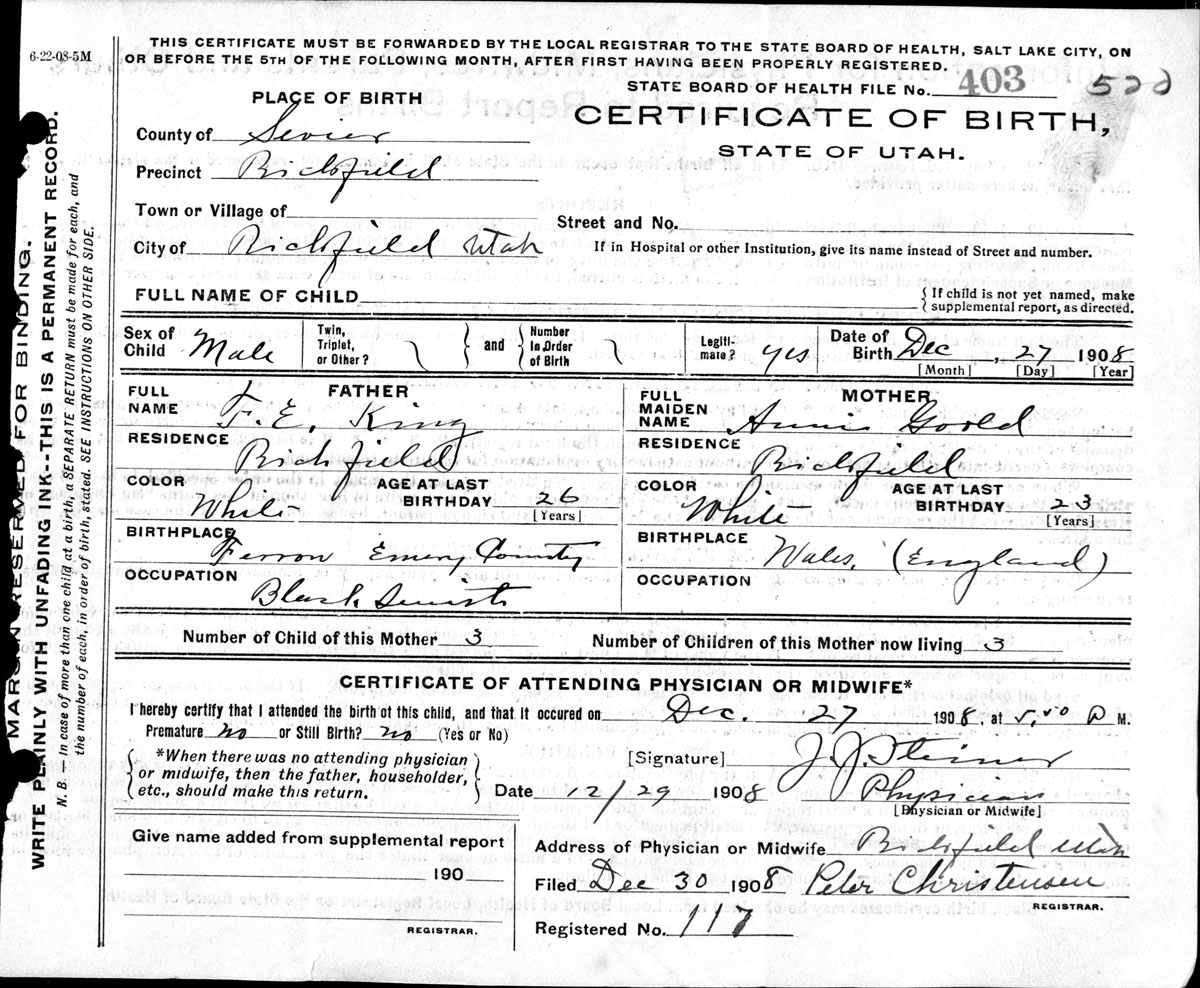 6-22-08-5M
THIS CERTIFICATE MUST BE FORWARDED BY THE LOCAL REGISTRAR TO THE STATE BOARD OF HEALTH, SALT LAKE CITY, ON
OR BEFORE THE 5TH OF THE FOLLOWING MONTH, AFTER FIRST HAVING BEEN PROPERLY REGISTERED.
STATE BOARD OF HEALTH FILE No. 403
CERTIFICATE OF BIRTH,
STATE OF UTAH.
PLACE OF BIRTH
County of Sevier
Precinct Richfield
Town or Village of
Street and No.
City of Richfield Utah
If in Hospital or other Institution, give its name instead of Street and number.
FULL NAME OF CHILD
{If child is not yet named, make
supplemental report, as directed.
Sex of Child Male
Twin, Triplet, or Other?
and
Number In Order of Birth
Legitimate? yes
Date of Birth Dec, 27 1908
[Month] [Day] [Year]
FATHER
FULL NAME F. E. King
RESIDENCE Richfield
COLOR White
AGE AT LAST BIRTHDAY 26
[Years]
BIRTHPLACE Ferron Emery County
OCCUPATION Black
MOTHER
FULL MAIDEN NAME Annie Goold
RESIDENCE Richfield
COLOR White
AGE AT LAST BIRTHDAY 23
[Years]
BIRTHPLACE Wales, (England)
OCCUPATION
Number of Child of this Mother 3
Number of Children of this Mother now living 3
CERTIFICATE OF ATTENDING PHYSICIAN OR MIDWIFE*
I hereby certify that I attended the birth of this child, and that it occured on Dec. 27 1908, at M.
Premature no or Still Birth? no (Yes or No)
*When there was no attending physician
or midwife, then the father, householder,
etc., should make this return.
[Signature] J. J. Steiner
Date 12/29 1908
Physician
[Physician or Midwife]
Give name added from supplemental report
190
REGISTRAR.
Address of Physician or Midwife Richfield Utah
Filed Dec 30 1908 Peter Christensen
REGISTRAR.
Registered No. 117
MARGIN RESERVED FOR BINDING.
WRITE PLAINLY WITH UNFADING INK--THIS IS A PERMANENT RECORD.
N. B. — In case of more than one child at a birth, a SEPARATE RETURN must be made for each, and
the number of each, in order of birth, stated. SEE INSTRUCTIONS ON OTHER SIDE.